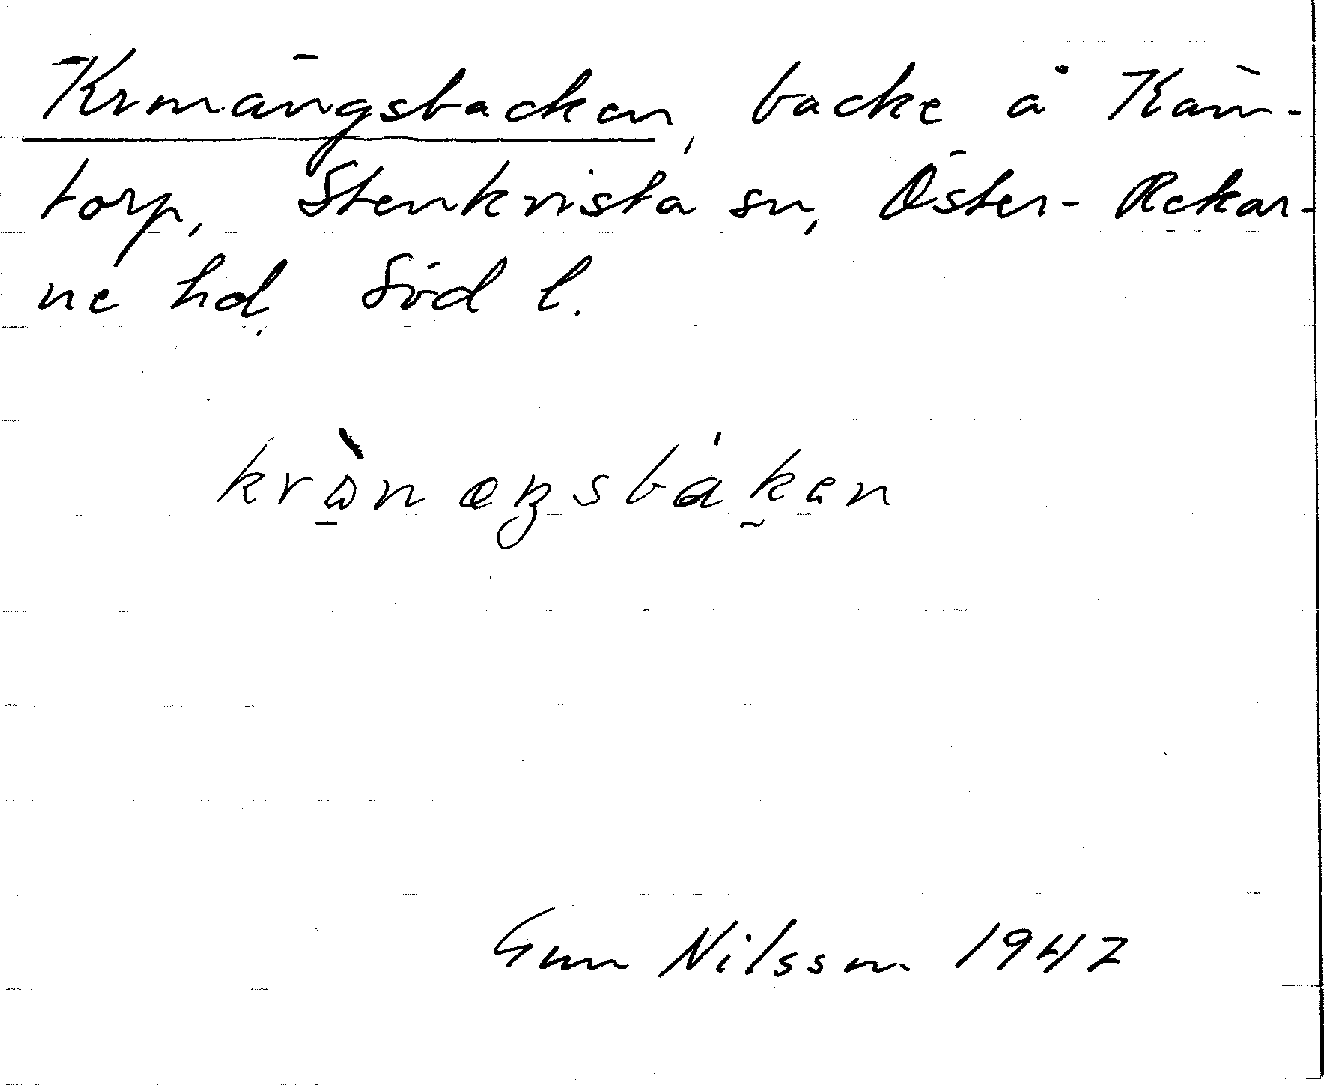 Kronängsbacken, backe å Käm-
torp, Stenkvista sn, Öster-Rekar-
ne hd. Söd l.
krò̱næŋsbákan
Gun Nilsson 1947